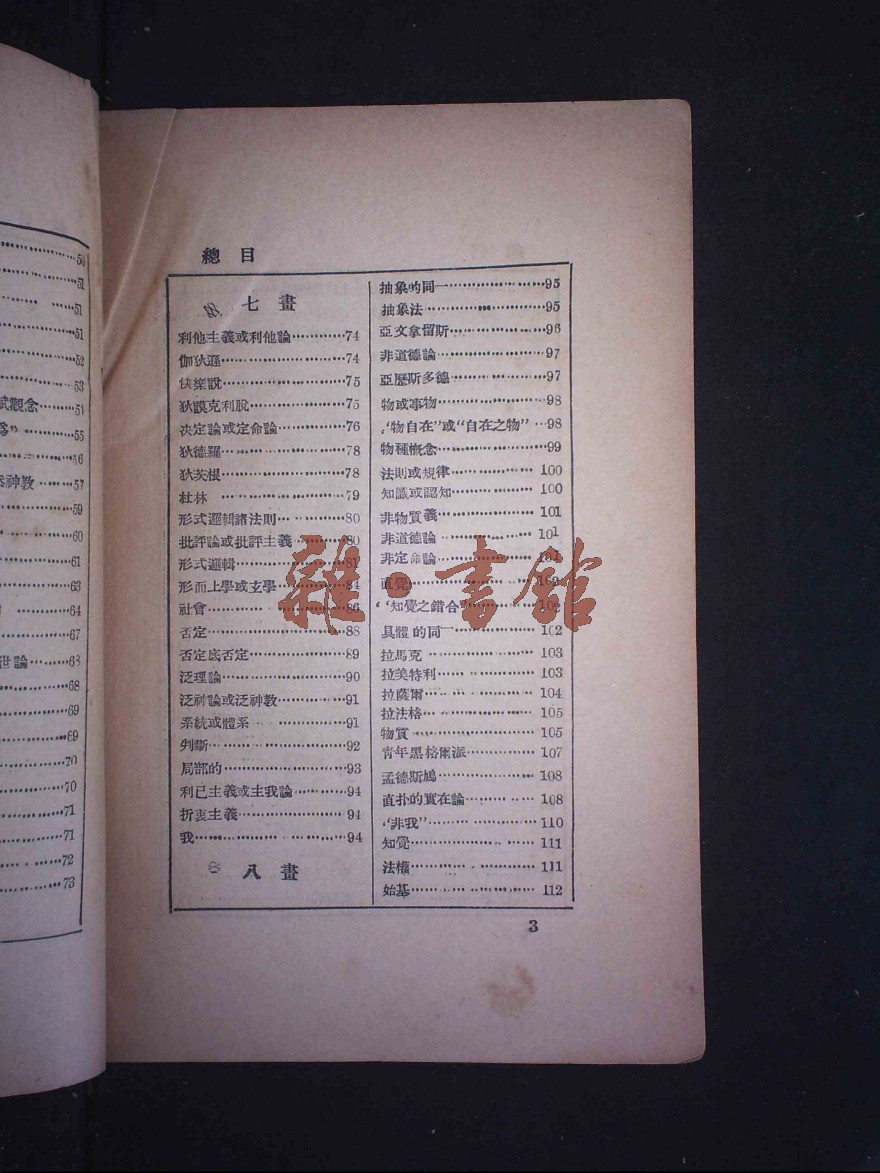 50
51
51
51
52
53
觀念……51
55
56
神教……57
59
60
61
63
64
67
世論……68
68
69
69
70
70
71
71
72
73
總目
七畫
利他主義或利他論……74
伽狄遜……74
快樂說……75
狄謨克利脫……75
決定論或定命論……76
狄德羅……78
狄茨根……78
杜林……79
形式邏輯諸法則……80
批評論或批評主義……80
形式邏輯……81
形而上學或玄學……84
社會……86
否定……88
否定底否定……89
泛理論……90
泛神論或泛神教……91
系統或體系……91
判斷……92
局部的……93
利已主義或主我論……94
折衷主義……94
我……94
八畫
抽象的同一……95
抽象法……95
亞文拿留斯……96
非道德論……97
亞歷斯多德……97
物或事物……98
“物自在”或“自在之物”……98
物種概念……99
法則或規律……100
知識或認知……100
非物質義……101
非道德論……101
非定命論……101
直覺……102
“知覺之錯合”……102
具體的同一……102
拉馬克……103
拉美特利……103
拉薩爾……104
拉法格……105
物質……105
青年黑格爾派……107
孟德斯鳩……108
直朴的實在論……108
“非我”……110
知覺……111
法權……111
始基……112
3
雜·書館